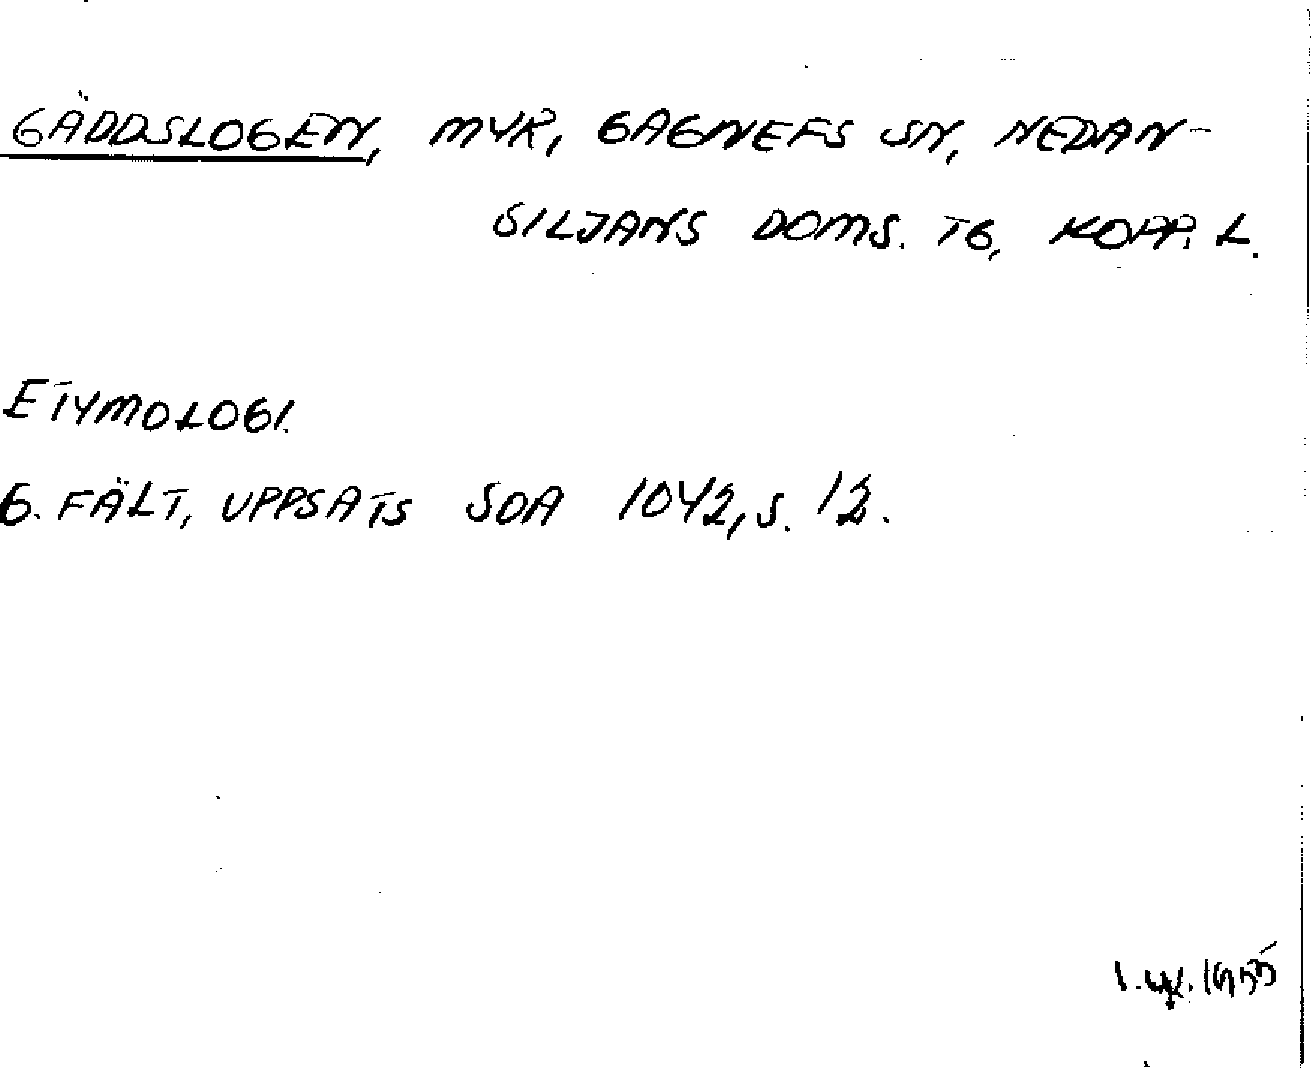 GÄDDSLOGEN, MYR, GAGNEFS SN, NEDAN-
SILJANS DOMS. TG, KOPP. L.
ETYMOLOGI.
G. FÄLT, UPPSATS SOA 1042, S. 12.
1955